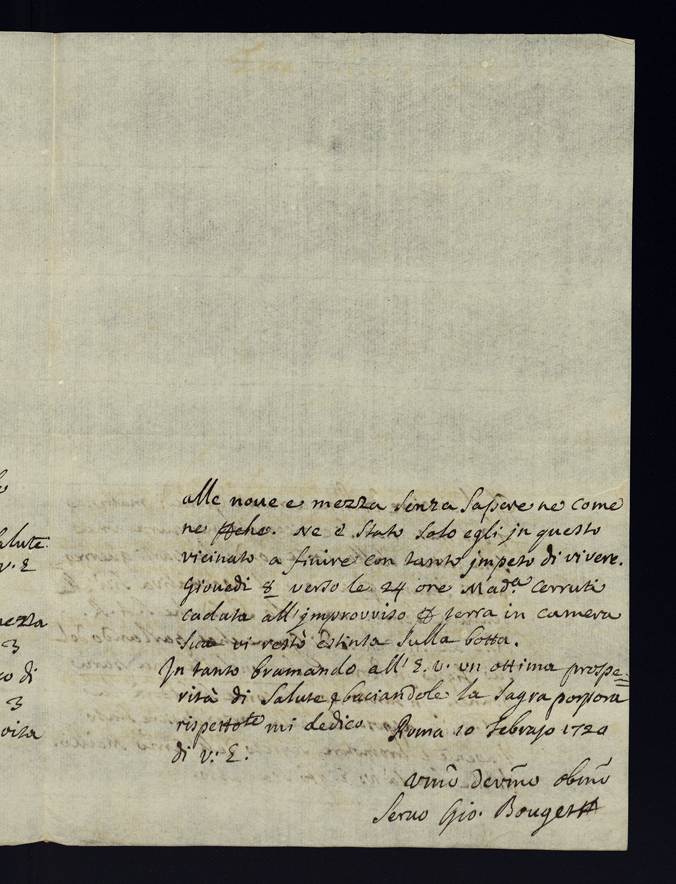 alle noue e mezza senza sapere ne come
ne p̄che. Ne è stato solo egli jn questo
vicinato a finire con tanto jmpeto di vivere.
Giouedi 8 verso le 24 ore Mad.ª Cerruti
caduta all'jmprovviso p̄ terra in camera
sua vi restò estinta sulla botta.
Jn tanto bramando all'E. V. un ottima prospe=
rità di salute, e baciandole la sagra porpora
rispett.te mi dedico Roma 10 Febrajo 1720
di V: E:
Vmõ devmõ obmõ
Seruo Gio. Bouget
salute
V. E
mezza
3
co di
3